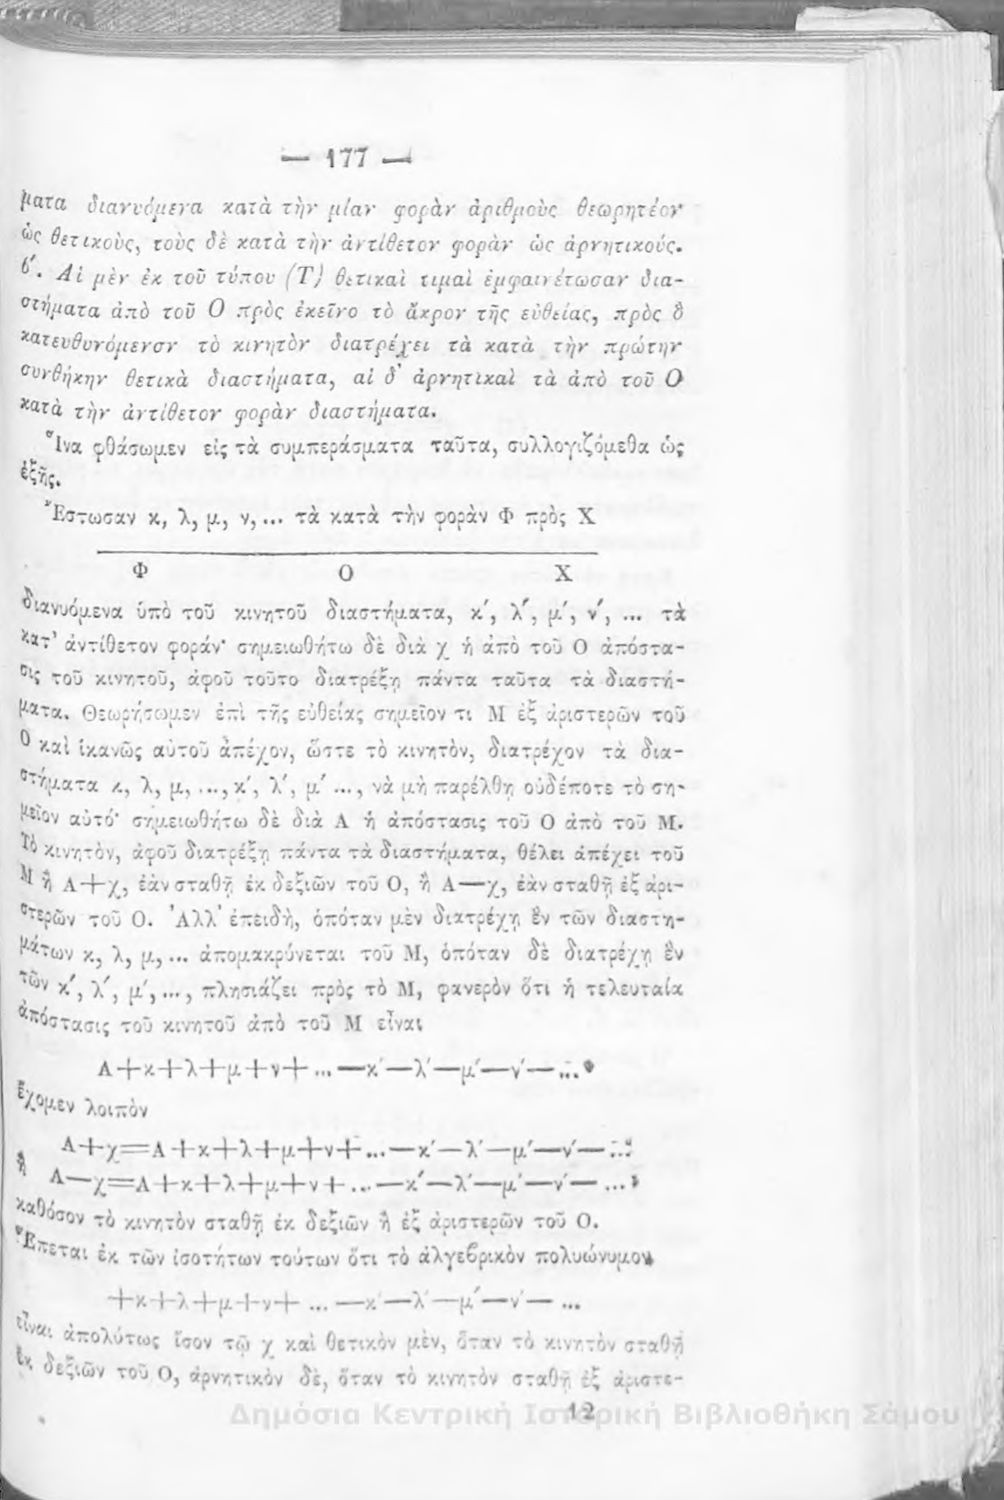 — 177 —
ματα διανυόμενα κατὰ τὴν μίαν φορὰν ἀριθμοὺς θεωρητέον
ὡς θετικοὺς, τοὺς δὲ κατὰ τὴν ἀντίθετον φορὰν ὡς ἀρνητικούς.
β΄. Αἱ μὲν ἐκ τοῦ τύπου (Τ) θετικαὶ τιμαὶ ἐμφαινέτωσαν δια-
στήματα ἀπὸ τοῦ Ο πρὸς ἐκεῖνο τὸ ἄκρον τῆς εὐθείας, πρὸς ὃ
κατευθυνόμενον τὸ κινητὸν διατρέχει τὰ κατὰ τὴν πρώτην
συνθήκην θετικὰ διαστήματα, αἱ δ' ἀρνητικαὶ τὰ ἀπὸ τοῦ Ο
κατὰ τὴν ἀντίθετον φορὰν διαστήματα.
Ἵνα φθάσωμεν εἰς τὰ συμπεράσματα ταῦτα, συλλογιζόμεθα ὡς
ἑξῆς.
Ἔστωσαν κ, λ, μ, ν,... τὰ κατὰ τὴν φορὰν Φ πρὸς Χ
Φ Ο Χ
διανυόμενα ὑπὸ τοῦ κινητοῦ διαστήματα, κ΄, λ΄, μ΄, ν΄, ... τὰ
κατ' ἀντίθετον φοράν· σημειωθήτω δὲ διὰ χ ἡ ἀπὸ τοῦ Ο ἀπόστα-
σις τοῦ κινητοῦ, ἀφοῦ τοῦτο διατρέξῃ πάντα ταῦτα τὰ διαστή-
ματα. Θεωρήσωμεν ἐπὶ τῆς εὐθείας σημεῖον τι Μ ἐξ ἀριστερῶν τοῦ
Ο καὶ ἱκανῶς αὐτοῦ ἀπέχον, ὥστε τὸ κινητὸν, διατρέχον τὰ δια-
στήματα κ, λ, μ, ..., κ΄, λ΄, μ΄ ..., νὰ μὴ παρέλθῃ οὐδέποτε τὸ ση-
μεῖον αὐτό· σημειωθήτω δὲ διὰ Α ἡ ἀπόστασις τοῦ Ο ἀπὸ τοῦ Μ.
Τὸ κινητὸν, ἀφοῦ διατρέξῃ πάντα τὰ διαστήματα, θέλει ἀπέχει τοῦ
Μ ἢ Α+χ, ἐὰν σταθῇ ἐκ δεξιῶν τοῦ Ο, ἢ Α—χ, ἐὰν σταθῇ ἐξ ἀρι-
στερῶν τοῦ Ο. Ἀλλ' ἐπειδὴ, ὁπόταν μὲν διατρέχῃ ἓν τῶν διαστη-
μάτων κ, λ, μ,... ἀπομακρύνεται τοῦ Μ, ὁπόταν δὲ διατρέχῃ ἓν
τῶν κ΄, λ΄, μ΄,..., πλησιάζει πρὸς τὸ Μ, φανερὸν ὅτι ἡ τελευταία
ἀπόστασις τοῦ κινητοῦ ἀπὸ τοῦ Μ εἶναι
Α+κ+λ+μ+ν+ ... —κ΄—λ΄—μ΄—ν΄— ...·
ἔχομεν λοιπὸν
Α+χ=Α+κ+λ+μ+ν+...—κ΄—λ΄—μ΄—ν΄— ...
ἢ Α—χ=Α+κ+λ+μ+ν+...—κ΄—λ΄—μ΄—ν΄— ...,
καθόσον τὸ κινητὸν σταθῇ ἐκ δεξιῶν ἢ ἐξ ἀριστερῶν τοῦ Ο.
Ἕπεται ἐκ τῶν ἰσοτήτων τούτων ὅτι τὸ ἀλγεβρικὸν πολυώνυμον
+κ+λ+μ+ν+ ... —κ΄—λ΄—μ΄—ν΄— ...
εἶναι ἀπολύτως ἴσον τῷ χ καὶ θετικὸν μὲν, ὅταν τὸ κινητὸν σταθῇ
ἐκ δεξιῶν τοῦ Ο, ἀρνητικὸν δὲ, ὅταν τὸ κινητὸν σταθῇ ἐξ ἀριστε-
12
Δημόσια Κεντρική Ιστορική Βιβλιοθήκη Σάμου